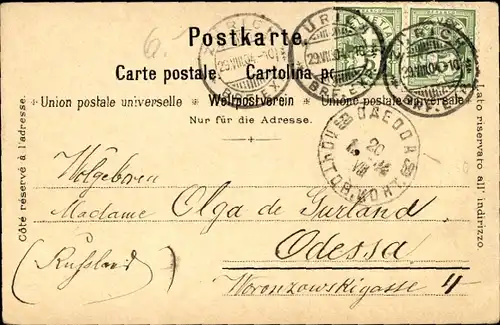 Postkarte.
Carte postale. Cartolina po
Union postale universelle Weltpostverein Unione postale universale
Nur für die Adresse.
Côté réservé à l'adresse.
Lato riservato all' indirizzo.
ZÜRICH
29.VIII.04.-10
BRF. EXP.
ZÜRICH
29.VIII.04.-10
BRF. EXP.
ZÜRICH
29.VIII.04.-10
BRF. EXP.
HELVETIA
20
VIII
Wolgeboren
Madame Olga de Gurland
Odessa
(Russland)
Woronzowskigasse 4